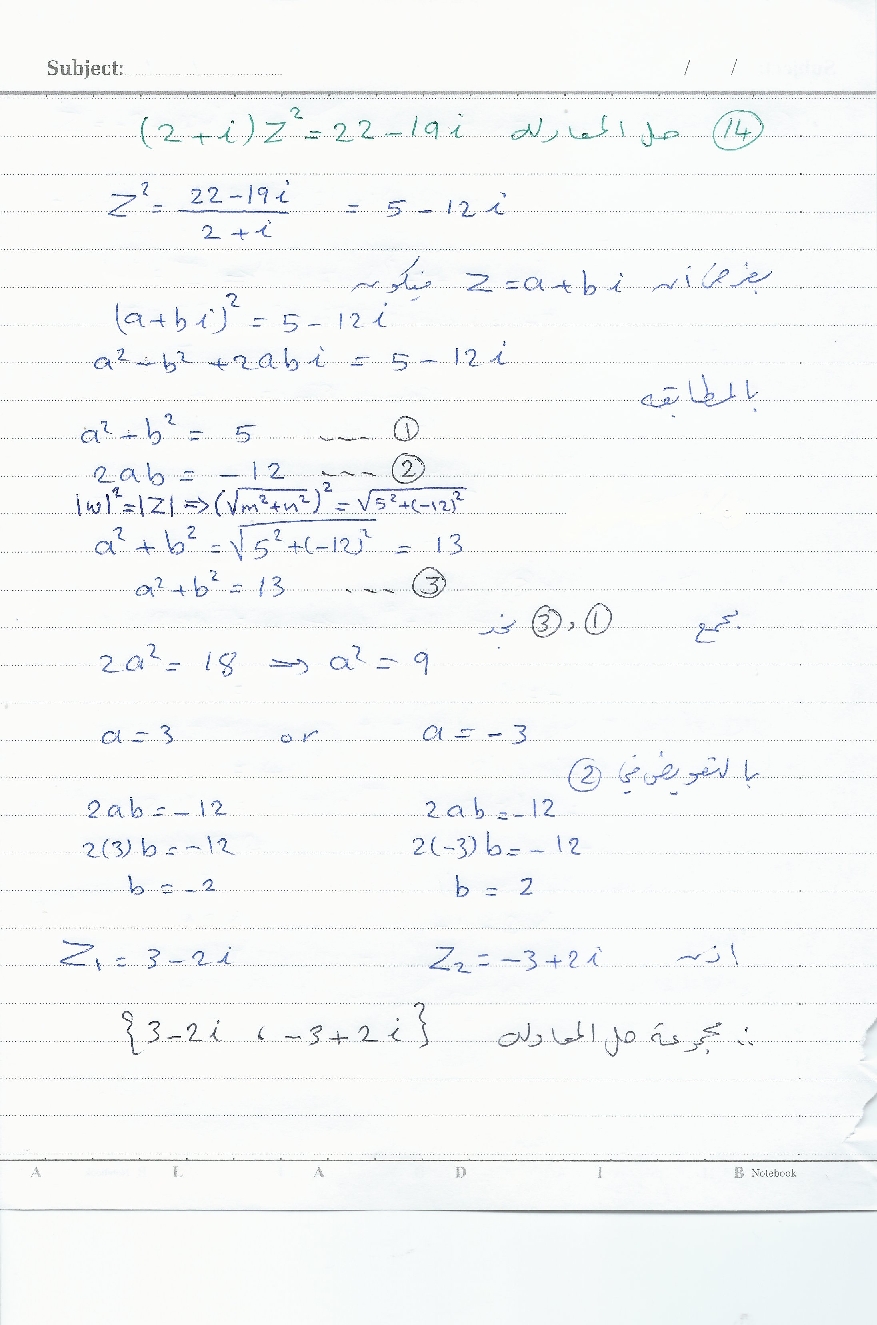 Subject: / /
(14) حل المعادلة (2+i)Z² = 22-19i
Z² = (22-19i)/(2+i) = 5-12i
بفرض أن Z = a+bi فيكون
(a+bi)² = 5-12i
a² - b² + 2abi = 5-12i
بالمطابقه
a² - b² = 5 --- ①
2ab = -12 --- ②
|w|² = |Z| ⇒ (√(m²+n²))² = √(5²+(-12)²)
a² + b² = √(5²+(-12)²) = 13
a² + b² = 13 --- ③
بجمع ①, ③ نجد
2a² = 18 ⇒ a² = 9
a = 3 or a = -3
بالتعويض في ②
2ab = -12 2ab = -12
2(3)b = -12 2(-3)b = -12
b = -2 b = 2
اذن Z₁ = 3-2i Z₂ = -3+2i
∴ مجموعة حل المعادلة {3-2i ، -3+2i}
A L A D I B Notebook